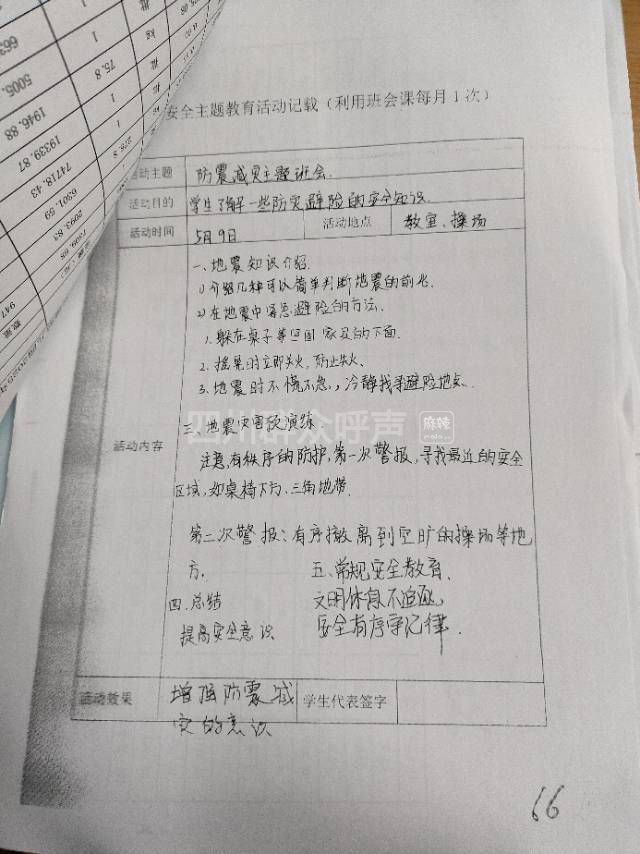 安全主题教育活动记载（利用班会课每月1次）
活动主题 防震减灾主题班会
活动目的 学生了解一些防灾避险的安全知识.
活动时间 5月9日 活动地点 教室、操场
活动内容
一、地震知识介绍.
1)介绍几种可以简单判断地震的前兆.
2)在地震中紧急避险的方法.
1.躲在桌子等坚固家具的下面.
2.摇晃时立即关火,防止失火、
3.地震时不慌不急,冷静找寻避险地点.
三.地震灾害预演练
注意,有秩序的防护,第一次警报,寻找最近的安全
区域,如桌椅下方、三角地带.
第二次警报:有序撤离到空旷的操场等地
方.
四.总结
提高安全意识
五.常规安全教育.
文明休息不追逐,
安全有序守纪律.
活动效果 增强防震减
灾的意识
学生代表签字
66
四川群众呼声
麻辣
75.8
1946.88
19339.87
74718.43
6301.59
947